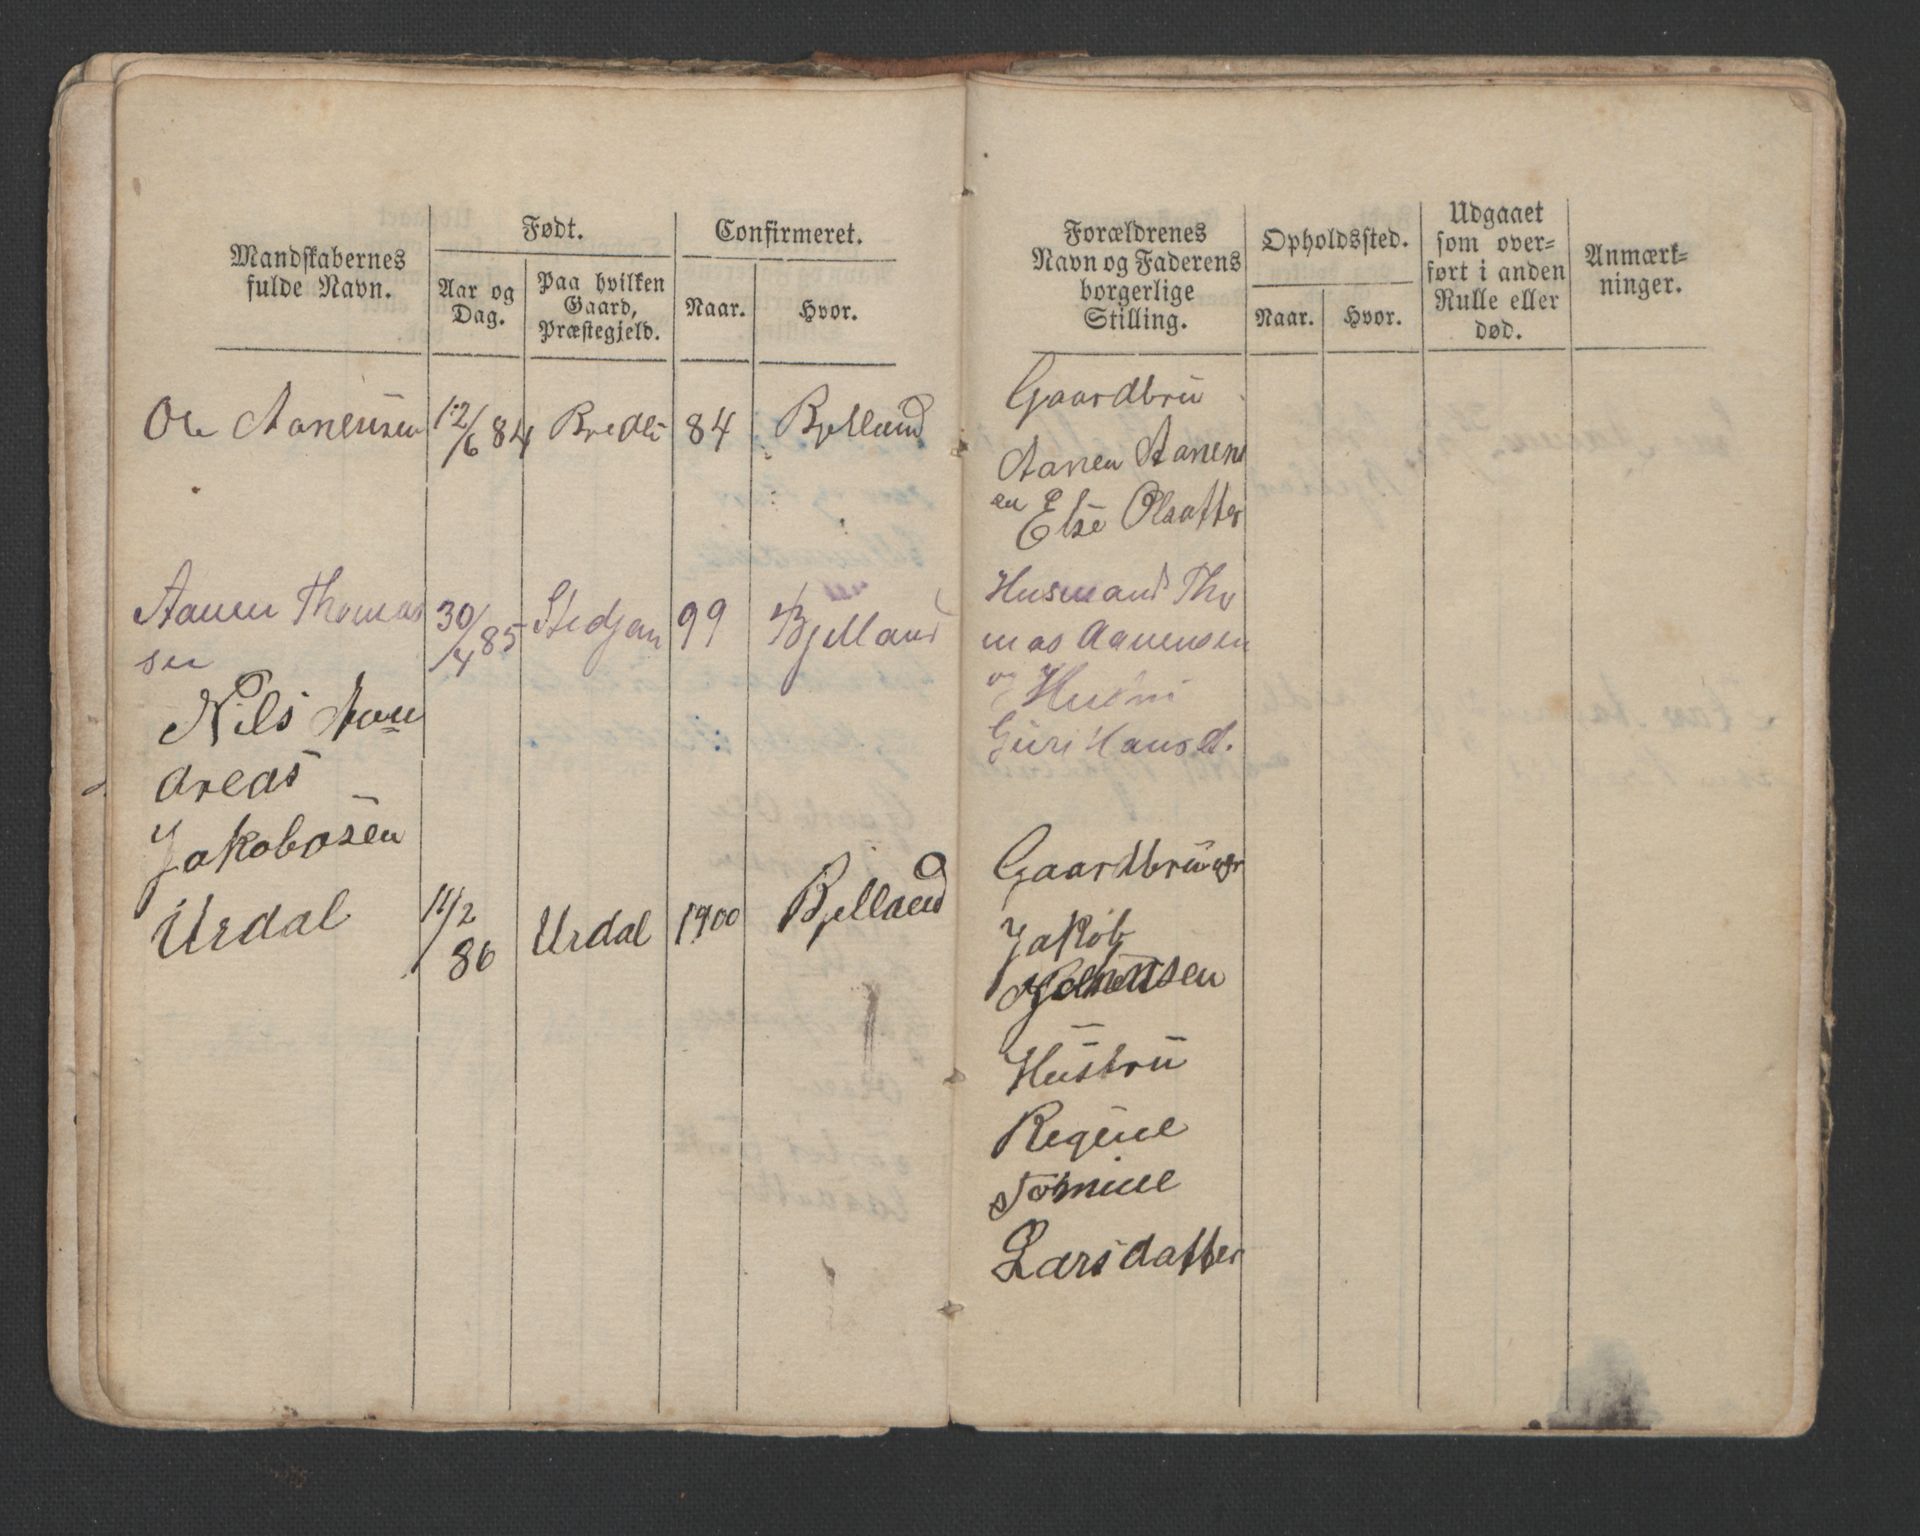 Mandskabernes
fulde Navn.
Født.
Aar og
Dag.
Paa hvilken
Gaard,
Præstegjeld.
Confirmeret.
Naar.
Hvor.
Ole Aanensen 12/6 84 Bredli 84 Bjelland
Aanen Thomas 30/4 85 Stedjan 99 Bjelland
sen
Nils Aan
dreas
Jakobosen
Urdal 14/2 86 Urdal 1900 Bjelland
Forældrenes
Navn og Faderens
borgerlige
Stilling.
Opholdssted.
Naar.
Hvor.
Udgaaet
som over-
ført i anden
Rulle eller
død.
Anmærk-
ninger.
Gaardbru
Aanen Aanens
en Else Olsatter
Husmand Tho
mas Aanensen
og Hustru
Guri Hansd.
Gaardbruger
Jakob
Hustru
Regine
Tomine
Larsdatter